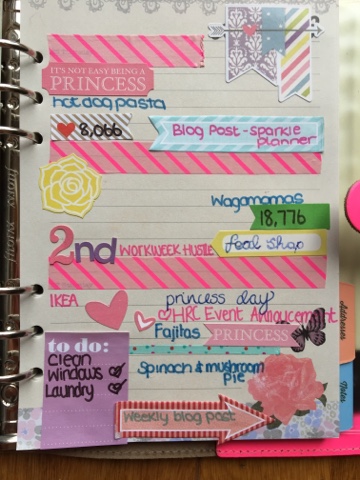 IT'S NOT EASY BEING A
PRINCESS
hot dog pasta
8,066
Blog Post - sparkle
planner
Wagamamas
18,776
2nd WORKWEEK HUSTLE
Food Shop
IKEA
princess day
HRC Event Annoucement
Fajitas
PRINCESS
to do:
Clean
Windows
Laundry
Spinach & mushroom
Pie
Weekly blog post
Addresses
Notes